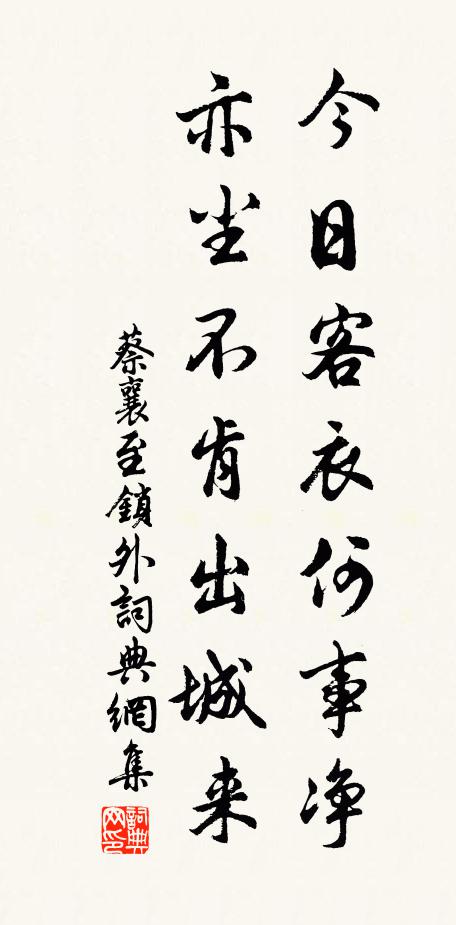 今日客衣何事净
亦尘不肯出城来
蔡襄至鎖外詞典網集
詞典网印